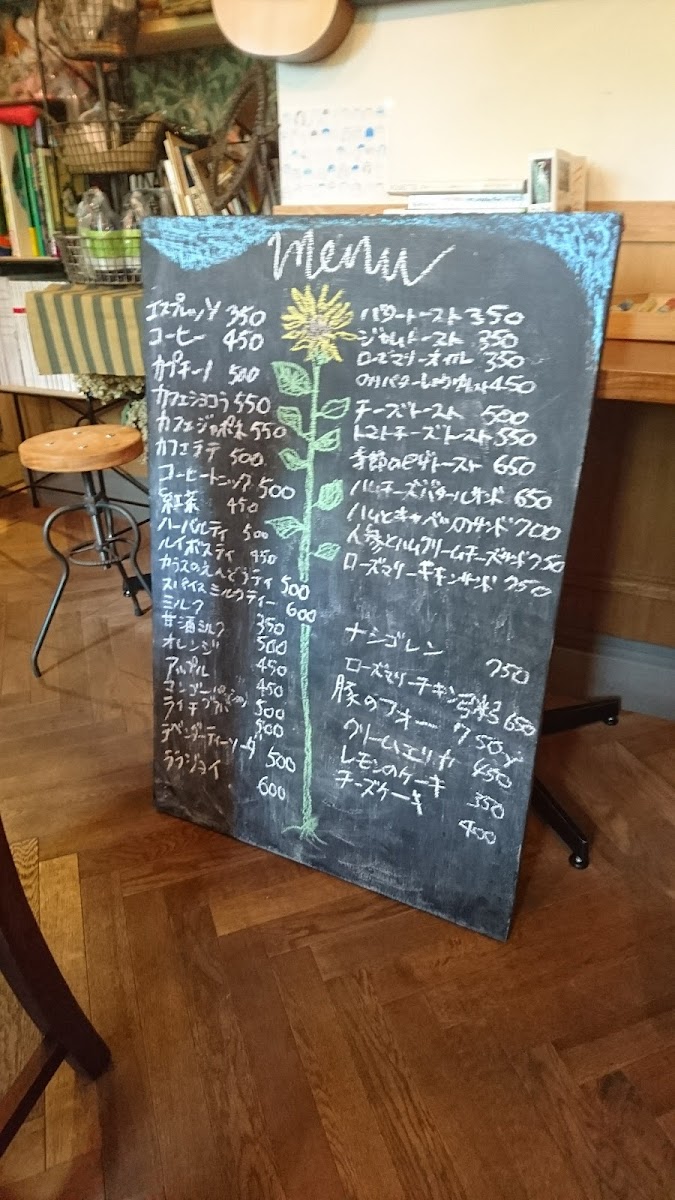 Menu
エスプレッソ 350
コーヒー 450
カプチーノ 500
カフェショコラ 550
カフェジャポネ 550
カフェラテ 500
コーヒートニック 500
紅茶 450
ハーバルティ 500
ルイボスティ 450
カラスのえんどうティ 500
スパイスミルクティー 600
ミルク 350
甘酒ミルク 500
オレンジ 450
アップル 450
マンゴー 500
ライチグァバ 500
ラベンダーティーソーダ 500
ララジョイ 600
バタートースト 350
ジャムトースト 350
ローズマリーオイル 350
のりバターしょうゆトースト 450
チーズトースト 500
トマトチーズトースト 550
季節のピザトースト 650
ハムチーズバタールサンド 650
ハムとキャベツのサンド 700
人参とハムクリームチーズサンド 750
ローズマリーチキンサンド 750
ナシゴレン 750
ローズマリーチキン 650
豚のフォー 750
クリームエリカ 450
レモンのケーキ 350
チーズケーキ 400